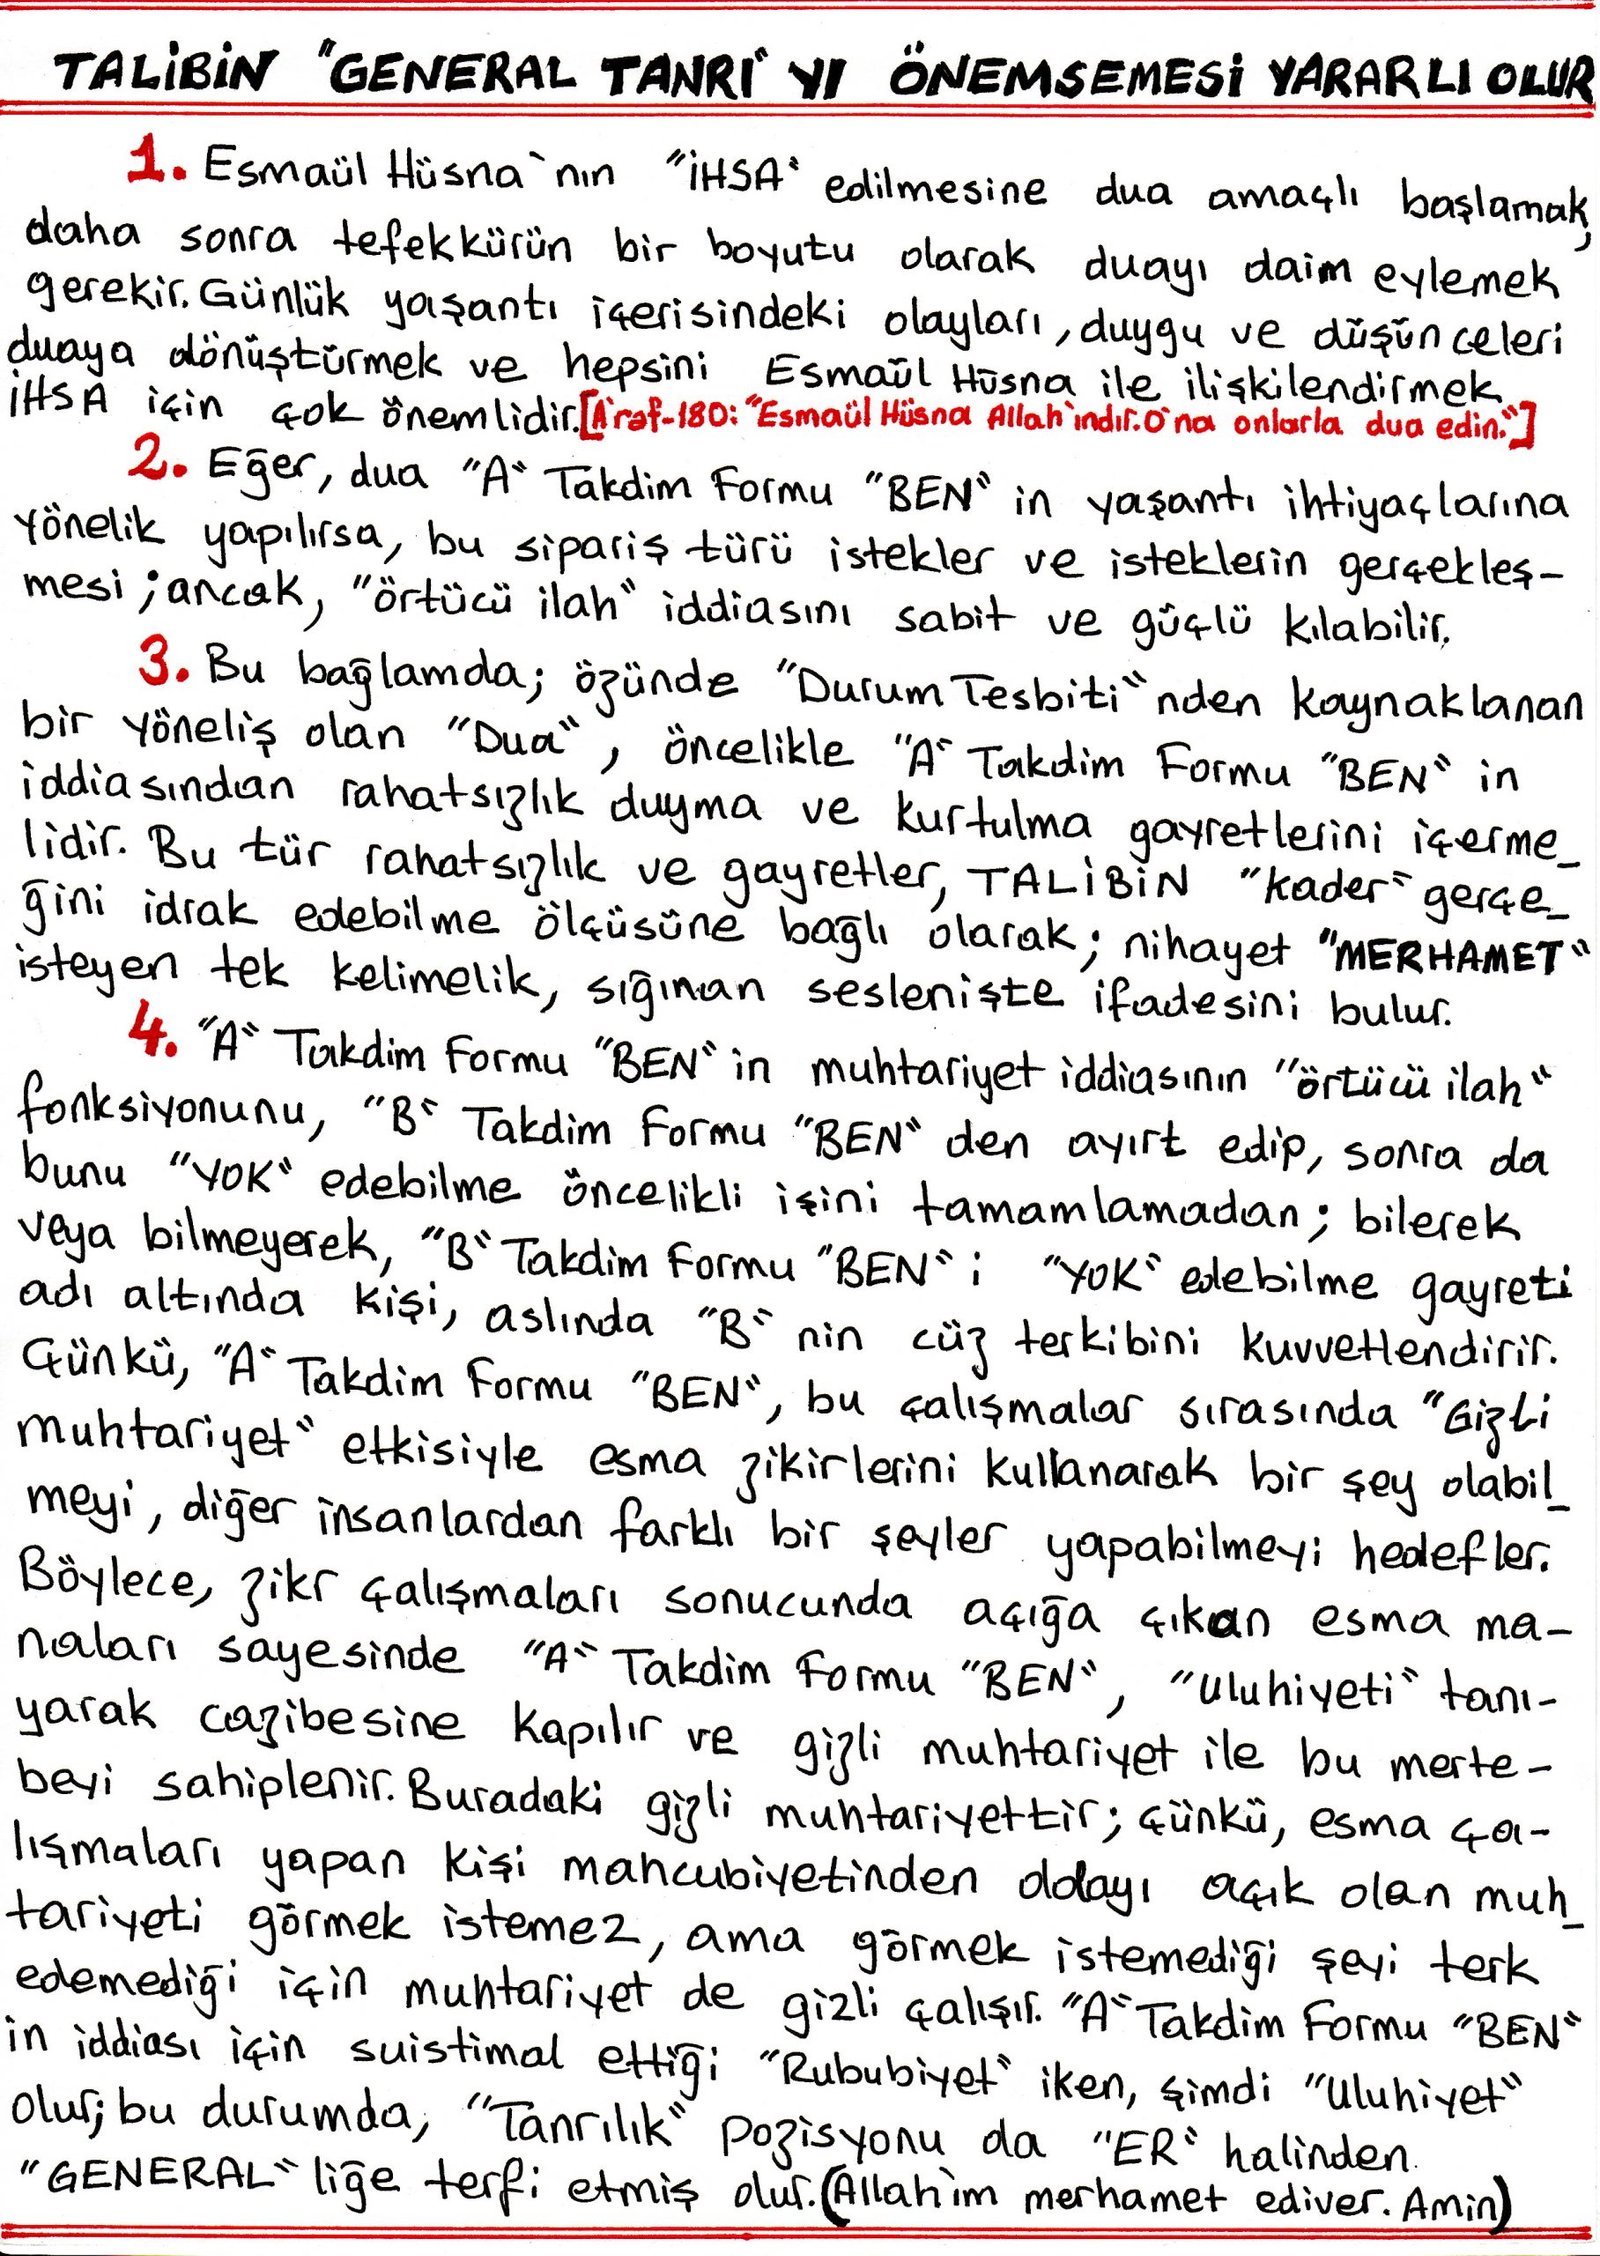 TALİBİN "GENERAL TANRI" YI ÖNEMSEMESİ YARARLI OLUR
1. Esmaül Hüsna`nın "İHSA" edilmesine dua amaçlı başlamak,
daha sonra tefekkürün bir boyutu olarak duayı daim eylemek
gerekir. Günlük yaşantı içerisindeki olayları, duygu ve düşünceleri
duaya dönüştürmek ve hepsini Esmaül Hüsna ile ilişkilendirmek
İHSA için çok önemlidir. [A`raf-180: "Esmaül Hüsna Allah`ındır. O`na onlarla dua edin."]
2. Eğer, dua "A" Takdim Formu "BEN" in yaşantı ihtiyaçlarına
yönelik yapılırsa, bu sipariş türü istekler ve isteklerin gerçekleş-
mesi; ancak, "örtücü ilah" iddiasını sabit ve güçlü kılabilir.
3. Bu bağlamda; özünde "Durum Tesbiti" nden kaynaklanan
bir yöneliş olan "Dua", öncelikle "A" Takdim Formu "BEN" in
iddiasından rahatsızlık duyma ve kurtulma gayretlerini içerme_
lidir. Bu tür rahatsızlık ve gayretler, TALİBİN "kader" gerçe_
ğini idrak edebilme ölçüsüne bağlı olarak; nihayet "MERHAMET"
isteyen tek kelimelik, sığınan seslenişte ifadesini bulur.
4. "A" Takdim Formu "BEN" in muhtariyet iddiasının "örtücü ilah"
fonksiyonunu, "B" Takdim Formu "BEN" den ayırt edip, sonra da
bunu "YOK" edebilme öncelikli işini tamamlamadan; bilerek
veya bilmeyerek, "B" Takdim Formu "BEN" i "YOK" edebilme gayreti
adı altında kişi, aslında "B" nin cüz terkibini kuvvetlendirir.
Çünkü, "A" Takdim Formu "BEN", bu çalışmalar sırasında "Gizli
muhtariyet" etkisiyle esma zikirlerini kullanarak bir şey olabil_
meyi, diğer insanlardan farklı bir şeyler yapabilmeyi hedefler.
Böylece, zikr çalışmaları sonucunda açığa çıkan esma ma-
naları sayesinde "A" Takdim Formu "BEN", "Uluhiyeti" tanı-
yarak cazibesine kapılır ve gizli muhtariyet ile bu merte-
beyi sahiplenir. Buradaki gizli muhtariyettir; çünkü, esma ça-
lışmaları yapan kişi mahcubiyetinden dolayı açık olan muh_
tariyeti görmek istemez, ama görmek istemediği şeyi terk
edemediği için muhtariyet de gizli çalışır. "A" Takdim Formu "BEN"
in iddiası için suistimal ettiği "Rububiyet" iken, şimdi "Uluhiyet"
olur; bu durumda, "Tanrılık" pozisyonu da "ER" halinden
"GENERAL" liğe terfi etmiş olur. (Allah`ım merhamet ediver. Amin)